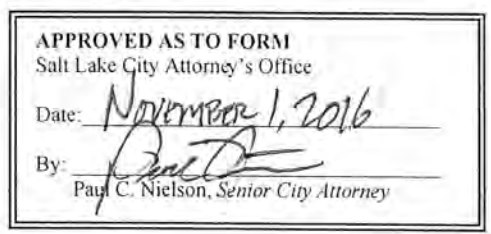 APPROVED AS TO FORM
Salt Lake City Attorney's Office
Date: NOVEMBER 1, 2016
By:
Paul C. Nielson, Senior City Attorney